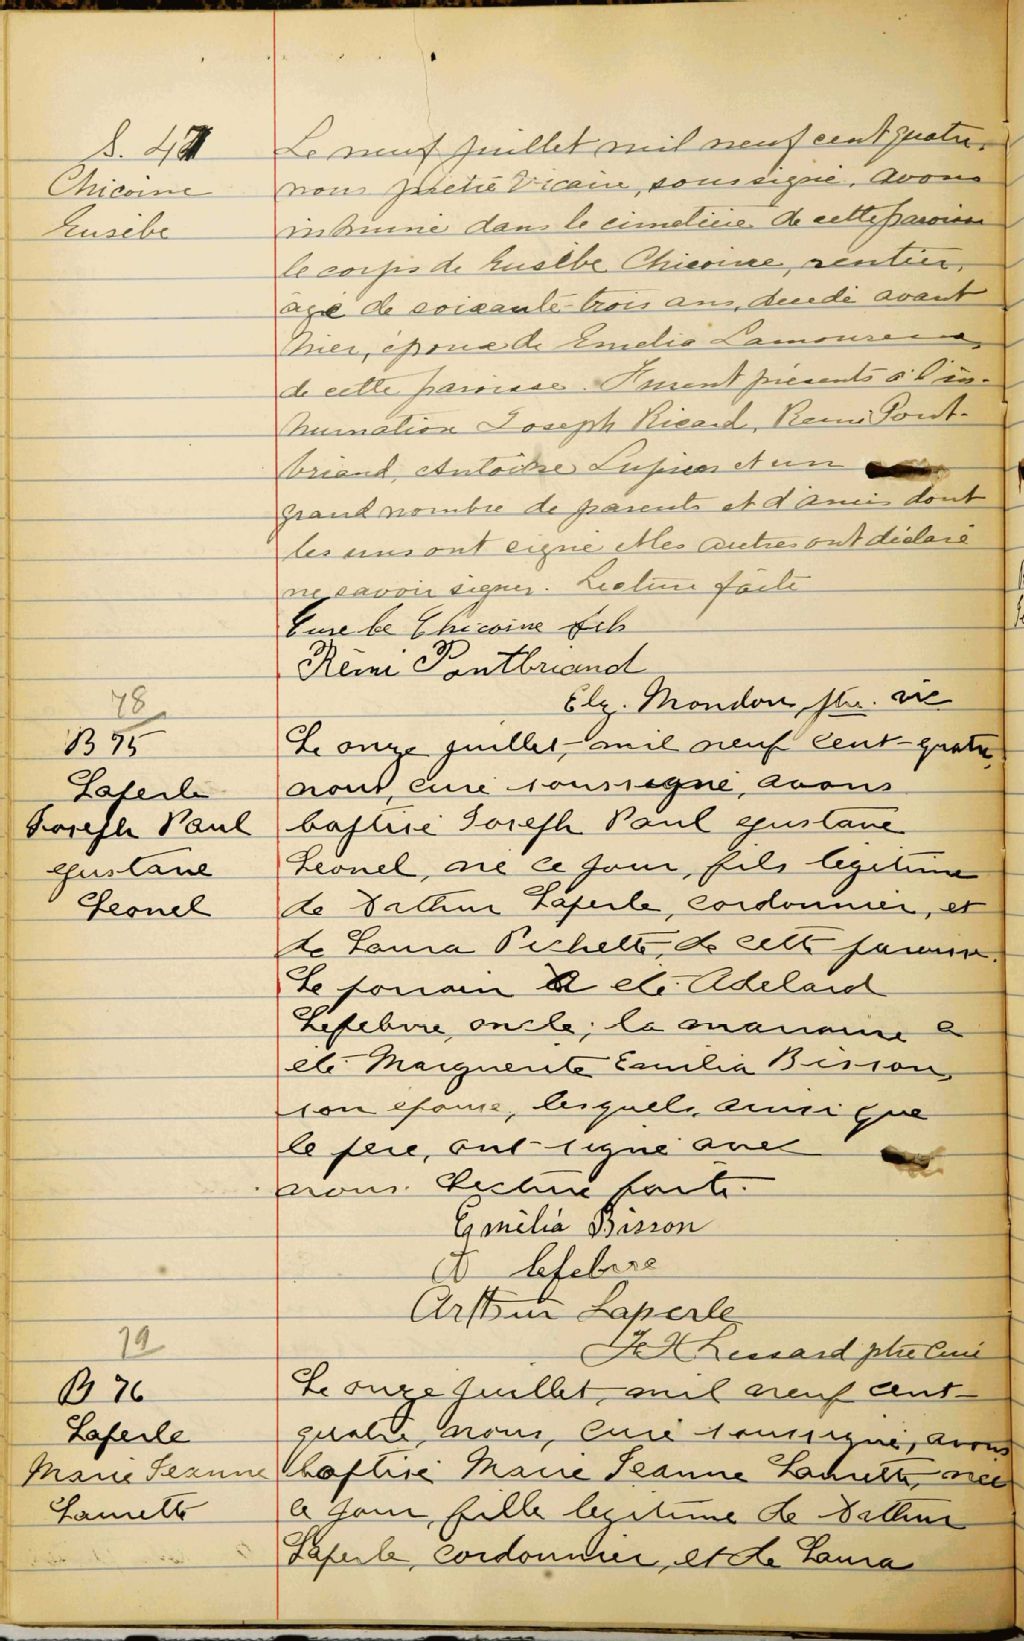 S. 47
Chicoine
Eusèbe
Le neuf juillet mil neuf cent quatre,
nous prêtre Vicaire, soussigné, avons
inhumé dans le cimetière de cette paroisse
le corps de Eusèbe Chicoine, rentier,
âgé de soixante-trois ans, décédé avant
hier, époux de Emelia Lamoureux,
de cette paroisse. Furent présents à l'in-
humation Joseph Ricard, Remi Pont-
briand, Antoine Lupien et un
grand nombre de parents et d'amis dont
les uns ont signé et les autres ont déclaré
ne savoir signer. Lecture faite
Eusebe Chicoine fils
Rémi Pontbriand
Elz. Mondou, ptre. vic
78
B 75
Laperle
Joseph Paul
Gustave
Leonel
Le onze juillet, mil neuf cent-quatre,
nous, curé soussigné, avons
baptisé Joseph Paul Gustave
Leonel, né ce jour, fils légitime
de Arthur Laperle, cordonnier, et
de Laura Pichette, de cette paroisse.
Le parrain a été Adelard
Lefebvre, oncle; la marraine a
été Marguerite Emilia Bisson,
son épouse, lesquels, ainsi que
le père, ont signé avec
nous. Lecture faite.
Emélia Bisson
A lefebvre
Arthur Laperle
F X Lessard ptre Curé
79
B 76
Laperle
Marie Jeanne
Laurette
Le onze juillet, mil neuf cent-
quatre, nous, curé soussigné, avons
baptisé Marie Jeanne Laurette, née
ce jour, fille légitime de Arthur
Laperle, cordonnier, et de Laura